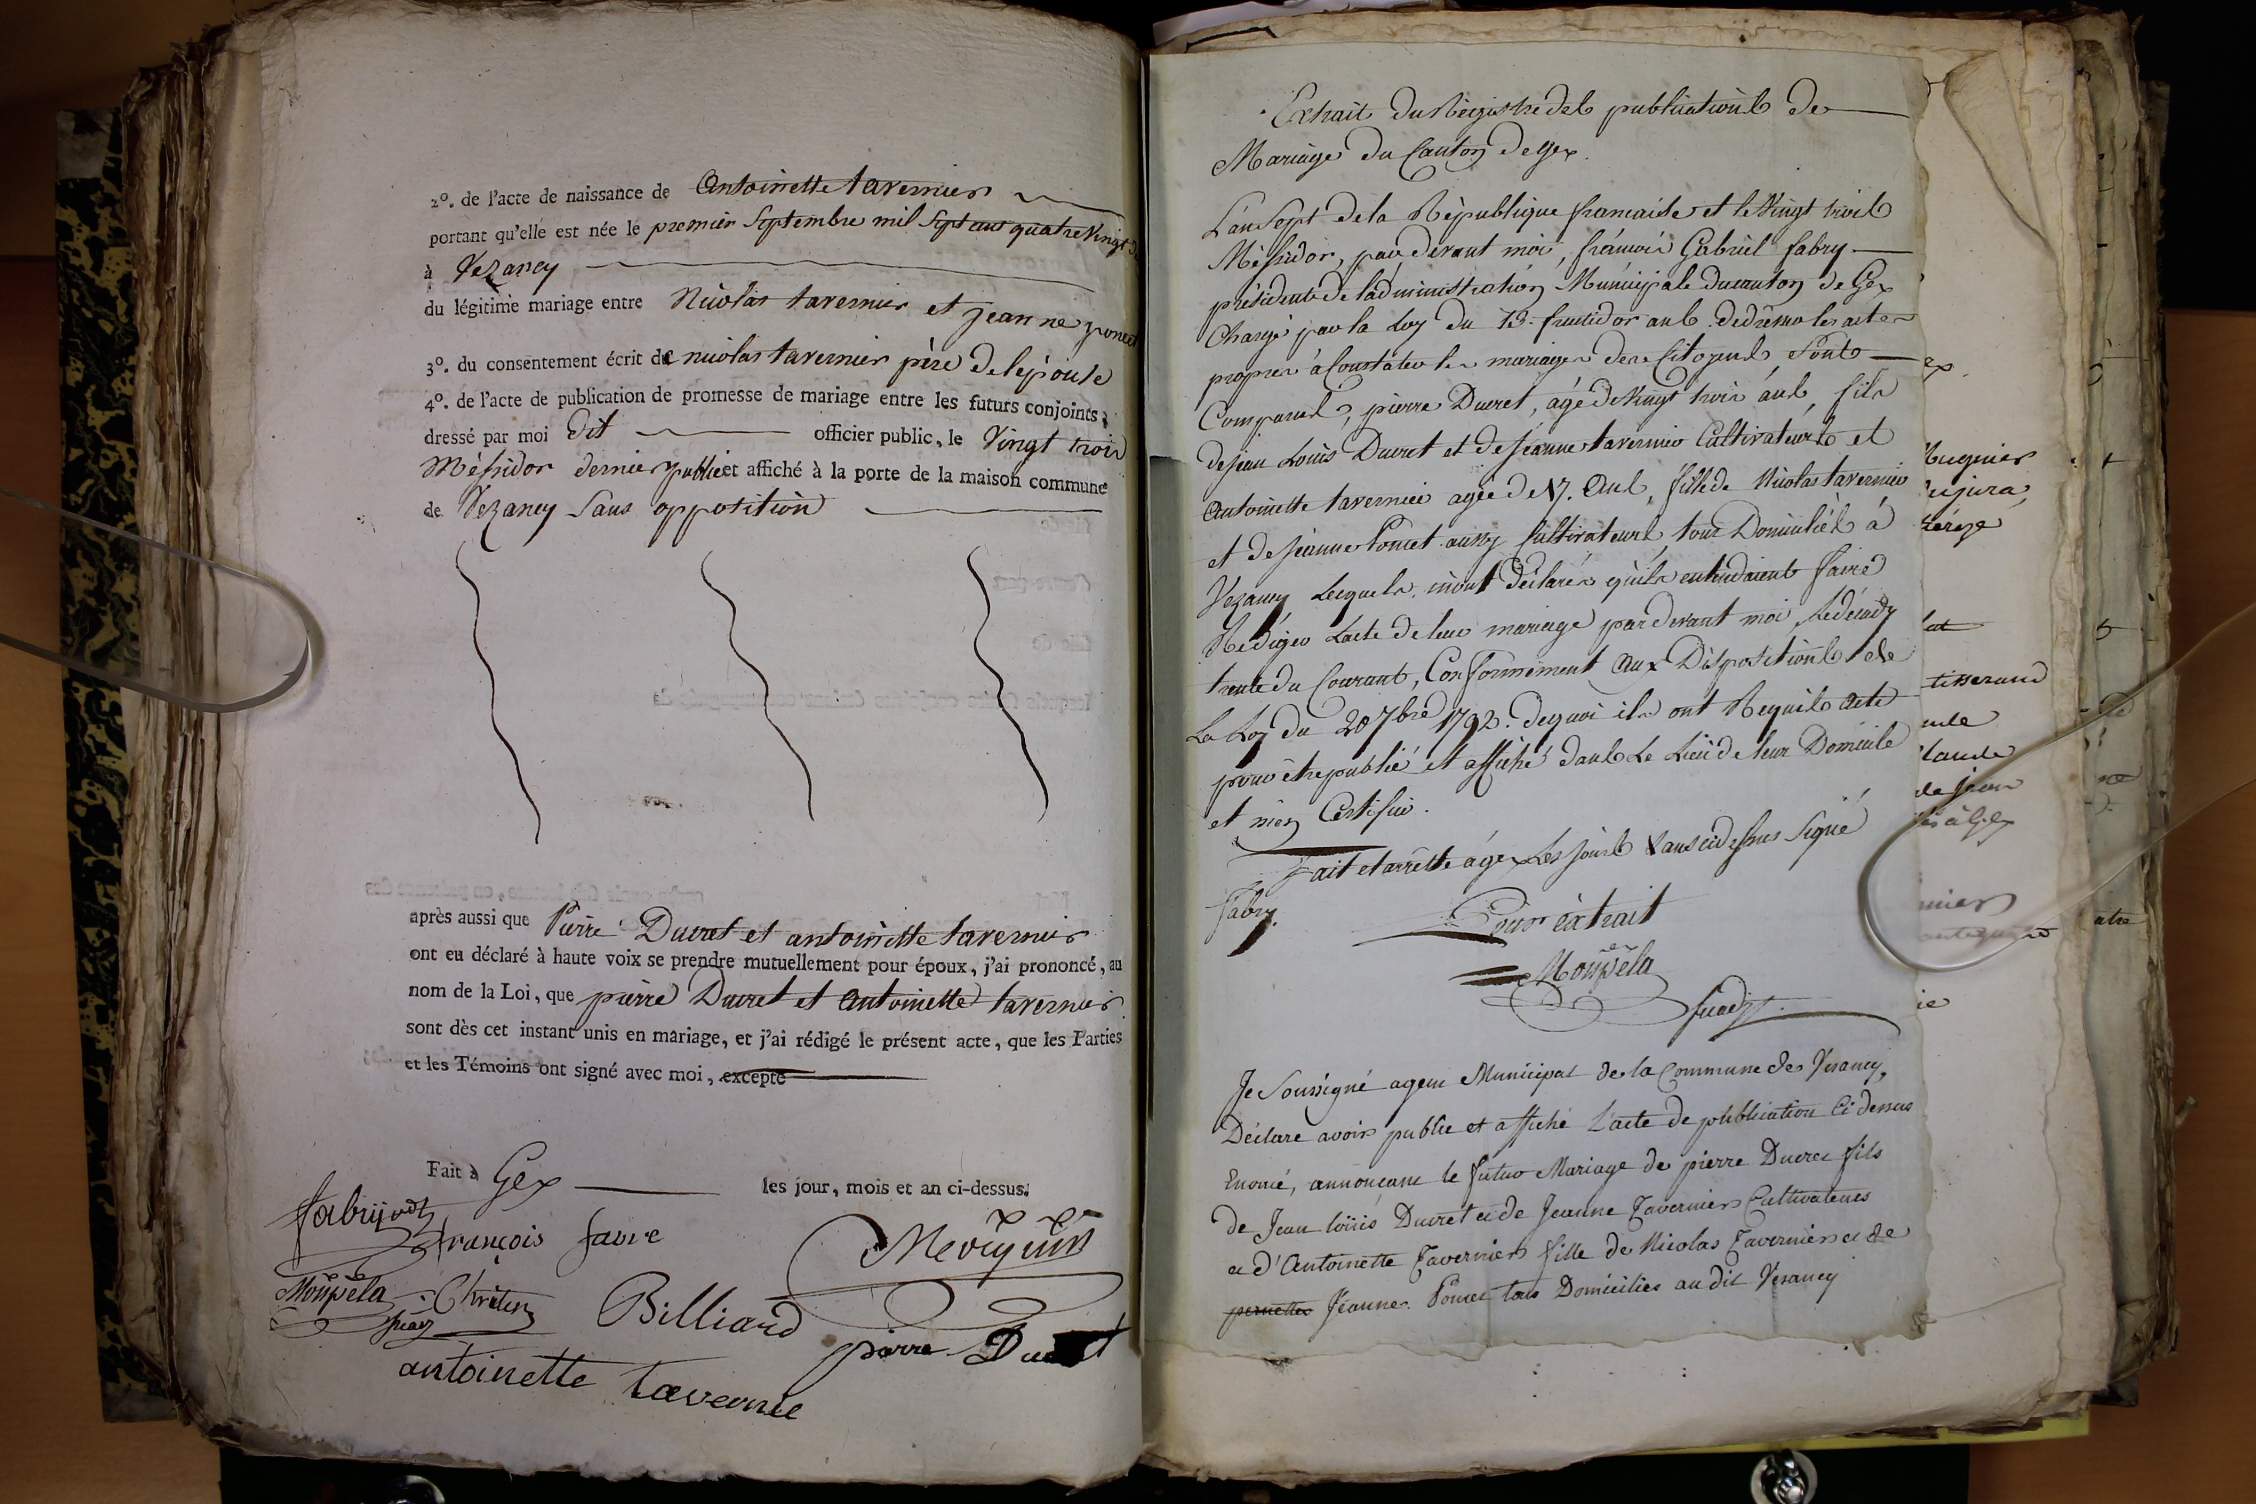 2º. de l'acte de naissance de Antoinette tavernier
portant qu'elle est née le premier Septembre mil Sept cent quatre Vingt
à Vezancy
du légitime mariage entre Nicolas tavernier et jeanne poncet
3º. du consentement écrit de nicolas tavernier père de l'épouse
4º. de l'acte de publication de promesse de mariage entre les futurs conjoints,
dressé par moi dit officier public, le Vingt trois
Méssidor dernier publié et affiché à la porte de la maison commune
de Vezancy Sans opposition
après aussi que Pierre Ducret et antoinette tavernier
ont eu déclaré à haute voix se prendre mutuellement pour époux, j'ai prononcé, au
nom de la Loi, que pierre Ducret et Antoinette tavernier
sont dès cet instant unis en mariage, et j'ai rédigé le présent acte, que les Parties
et les Témoins ont signé avec moi, excepté
Fait à Gex les jour, mois et an ci-dessus.
Fabry pdt
françois favre
Mouvéla
Chrétien
Billiard
pierre Ducret
antoinette tavernie
Extrait du Régistre des publications de
Mariage du Canton de Gex.
L'an Sept de la République francaise et le Vingt trois
Méssidor, par devant moi, françois Gabriel fabry
président de l'administration Municipale du canton de Gex
Chargé par la Loy du 13. fructidor an 6. de drésser les actes
propres à Constater les mariages des Citoyens, Sont
Comparus, pierre Ducret, âgé de Vingt trois ans, fils
de jean Louis Ducret et de Jeanne tavernier Cultivateurs et
Antoinette tavernier agée de 17. Ans, fille de Nicolas tavernier
et de Jeanne Poncet aussy Cultivateurs tous Domiciliés à
Vezancy Lesquels, m'ont déclarés qu'ils entendaient faire
Rédiger L'acte de leur mariage par devant moi, le décady
trente du Courant, Conformément aux Dispositions de
La Loy du 20 7bre 1792. de quoi ils ont Requis acte
pour être publié et affiché dans Le Lieu de leur Domicile
et m'en Certifier.
Fait et arrêtté à gex Les jours & ans cidessus Signé
fabry.
Pour éxtrait
Mouvéla
Je Soussigné agent Municipal de la Commune de Vesancy,
Déclare avoir publié et affiché L'acte de publication Ci dessus
Enoncé, annonçant le futur Mariage de pierre Ducret fils
de Jean loüis Ducret et de Jeanne Tavernier Cultivateurs
et d'Antoinette Tavernier fille de Nicolas Tavernier et de
pernette Jeanne Poncet tous Domiciliés au dit Vesancy
tisserand